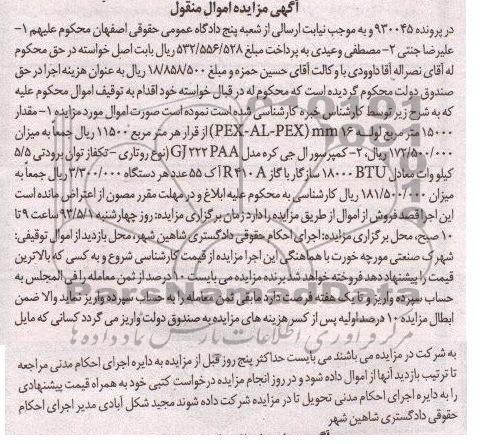 آگهی مزایده اموال منقول
در پرونده ۹۳۰۰۴۵ و به موجب نیابت ارسالی از شعبه پنج دادگاه عمومی حقوقی اصفهان محکوم علیهم ۱-
علیرضا جنتی ۲- مصطفی وعیدی به پرداخت مبلغ ۵۳۲/۵۵۶/۵۲۸ ریال بابت اصل خواسته در حق محکوم
له آقای نصراله آقا داوودی با وکالت آقای حسین حمزه و مبلغ ۱۸/۸۵۸/۵۰۰ ریال به عنوان هزینه اجرا در حق
صندوق دولت محکوم گردیده است که محکوم له در قبال خواسته خود اقدام به توقیف اموال محکوم علیه
که به شرح زیر توسط کارشناس خبره کارشناسی شده است نموده است صورت اموال مورد مزایده ۱- مقدار
۱۵۰۰۰ متر مربع لوله ۱۶ mm (PEX-AL-PEX) از قرار هر متر مربع ۱۱۵۰۰ ریال جمعاً به میزان
۱۷۲/۵۰۰/۰۰۰ ریال، ۲- کمپرسور ال جی کره مدل GJ ۲۲۲ PAA (نوع روتاری - تکفاز توان برودتی ۵/۵
کیلو وات معادل ۱۸۰۰۰ BTU سازگار با گاز R۴۱۰A آ ک ۵۵ عدد هر دستگاه ۳/۳۰۰/۰۰۰ ریال جمعاً به
میزان ۱۸۱/۵۰۰/۰۰۰ ریال کارشناسی به محکوم علیه ابلاغ و در مهلت مقرر مصون از اعتراض مانده است
این اجرا قصد فروش از اموال از طریق مزایده را دارد زمان برگزاری مزایده: روز چهارشنبه ۹۳/۵/۱ ساعت ۹ تا
۱۰ صبح، محل برگزاری مزایده: اجرای احکام حقوقی دادگستری شاهین شهر، محل بازدید از اموال توقیفی:
شهرک صنعتی مورچه خورت با هماهنگی این اجرا مزایده از قیمت کارشناسی شروع و به کسی که بالاترین
قیمت را پیشنهاد دهد فروخته خواهد شد برنده مزایده می بایست ۱۰ درصد از ثمن معامله را فی المجلس به
حساب سپرده واریز و تا یک هفته فرصت دارد مابقی ثمن معامله را به حساب سپرده واریز نماید والا ضمن
ابطال مزایده ۱۰ درصد اولیه پس از کسر هزینه های مزایده به صندوق دولت واریز می گردد کسانی که مایل
به شرکت در مزایده می باشند می بایست حداکثر پنج روز قبل از مزایده به دایره اجرای احکام مدنی مراجعه
تا ترتیب بازدید آنها از اموال داده شود و در روز انجام مزایده درخواست کتبی خود به همراه قیمت پیشنهادی
را به دایره اجرای احکام مدنی تحویل تا در مزایده شرکت داده شوند مجید شکل آبادی مدیر اجرای احکام
حقوقی دادگستری شاهین شهر